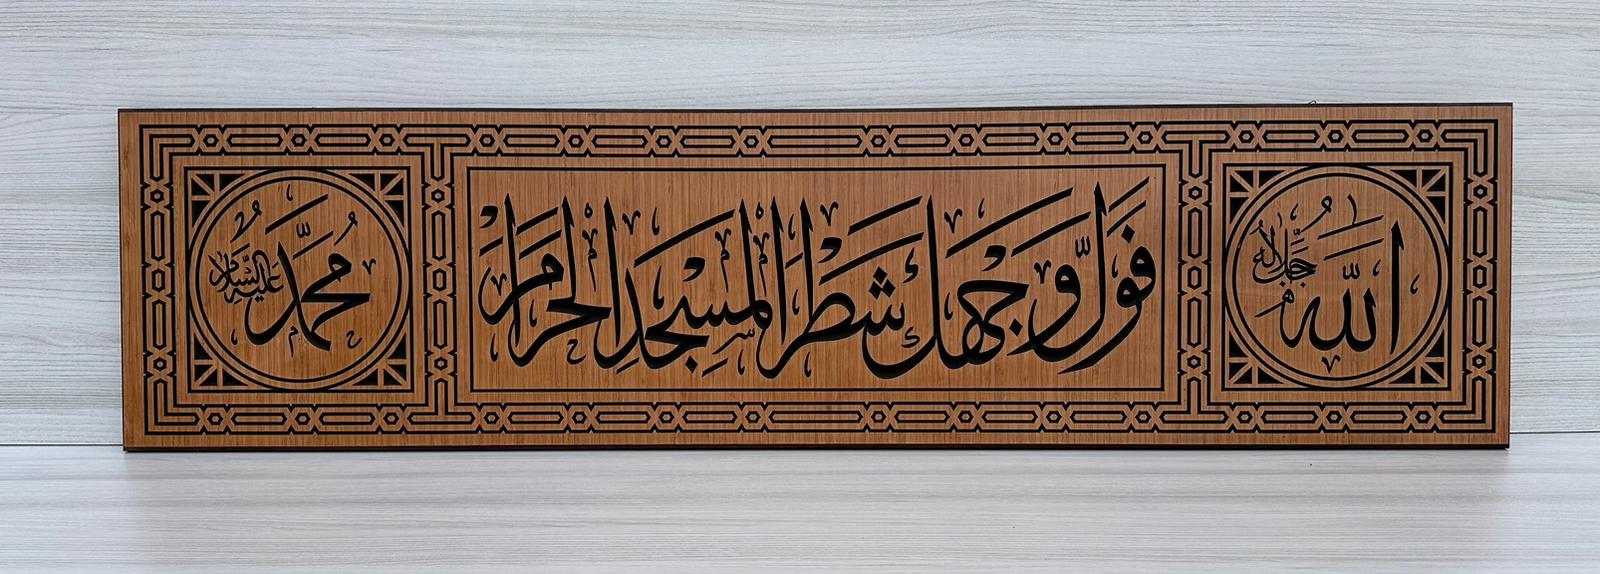 الله جل جلاله
فَوَلِّ وَجْهَكَ شَطْرَ الْمَسْجِدِ الْحَرَامِ
محمد عليه السلام